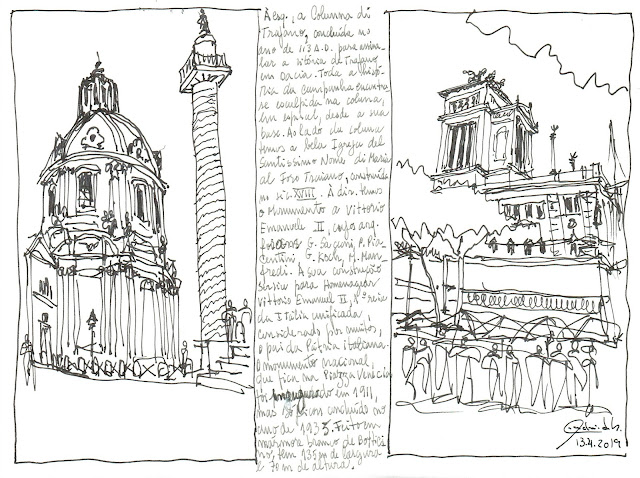 À esq., a Columna di
Trajano, concluída no
ano de 113 A.D. para assina
lar a vitória de Trajano
em Dacia. Toda a histó
ria da campanha encontra
se esculpida na coluna,
em espiral, desde a sua
base. Ao lado da coluna
temos a bela Igreja del
Santissimo Nome di Maria
al Foro Traiano, construída
no séc. XVIII. À dir. temos
o Monumento a Vittorio
Emanuele II, cujos arq.
foram G. Sacconi, P. Pia-
centini G. Koch, M. Man-
fredi. A sua construção
serviu para Homenagear
Vittorio Emanuel II, 1º rei
da Itália unificada,
considerado por muitos,
o pai da Pátria italiana.
O monumento nacional,
que fica na Piazza Venezia
foi inaugurado em 1911,
mas só ficou concluído no
ano de 1935. Feito em
marmore branco de Bottici
no, tem 135m de largura
e 70 m de altura.
13.4.2019